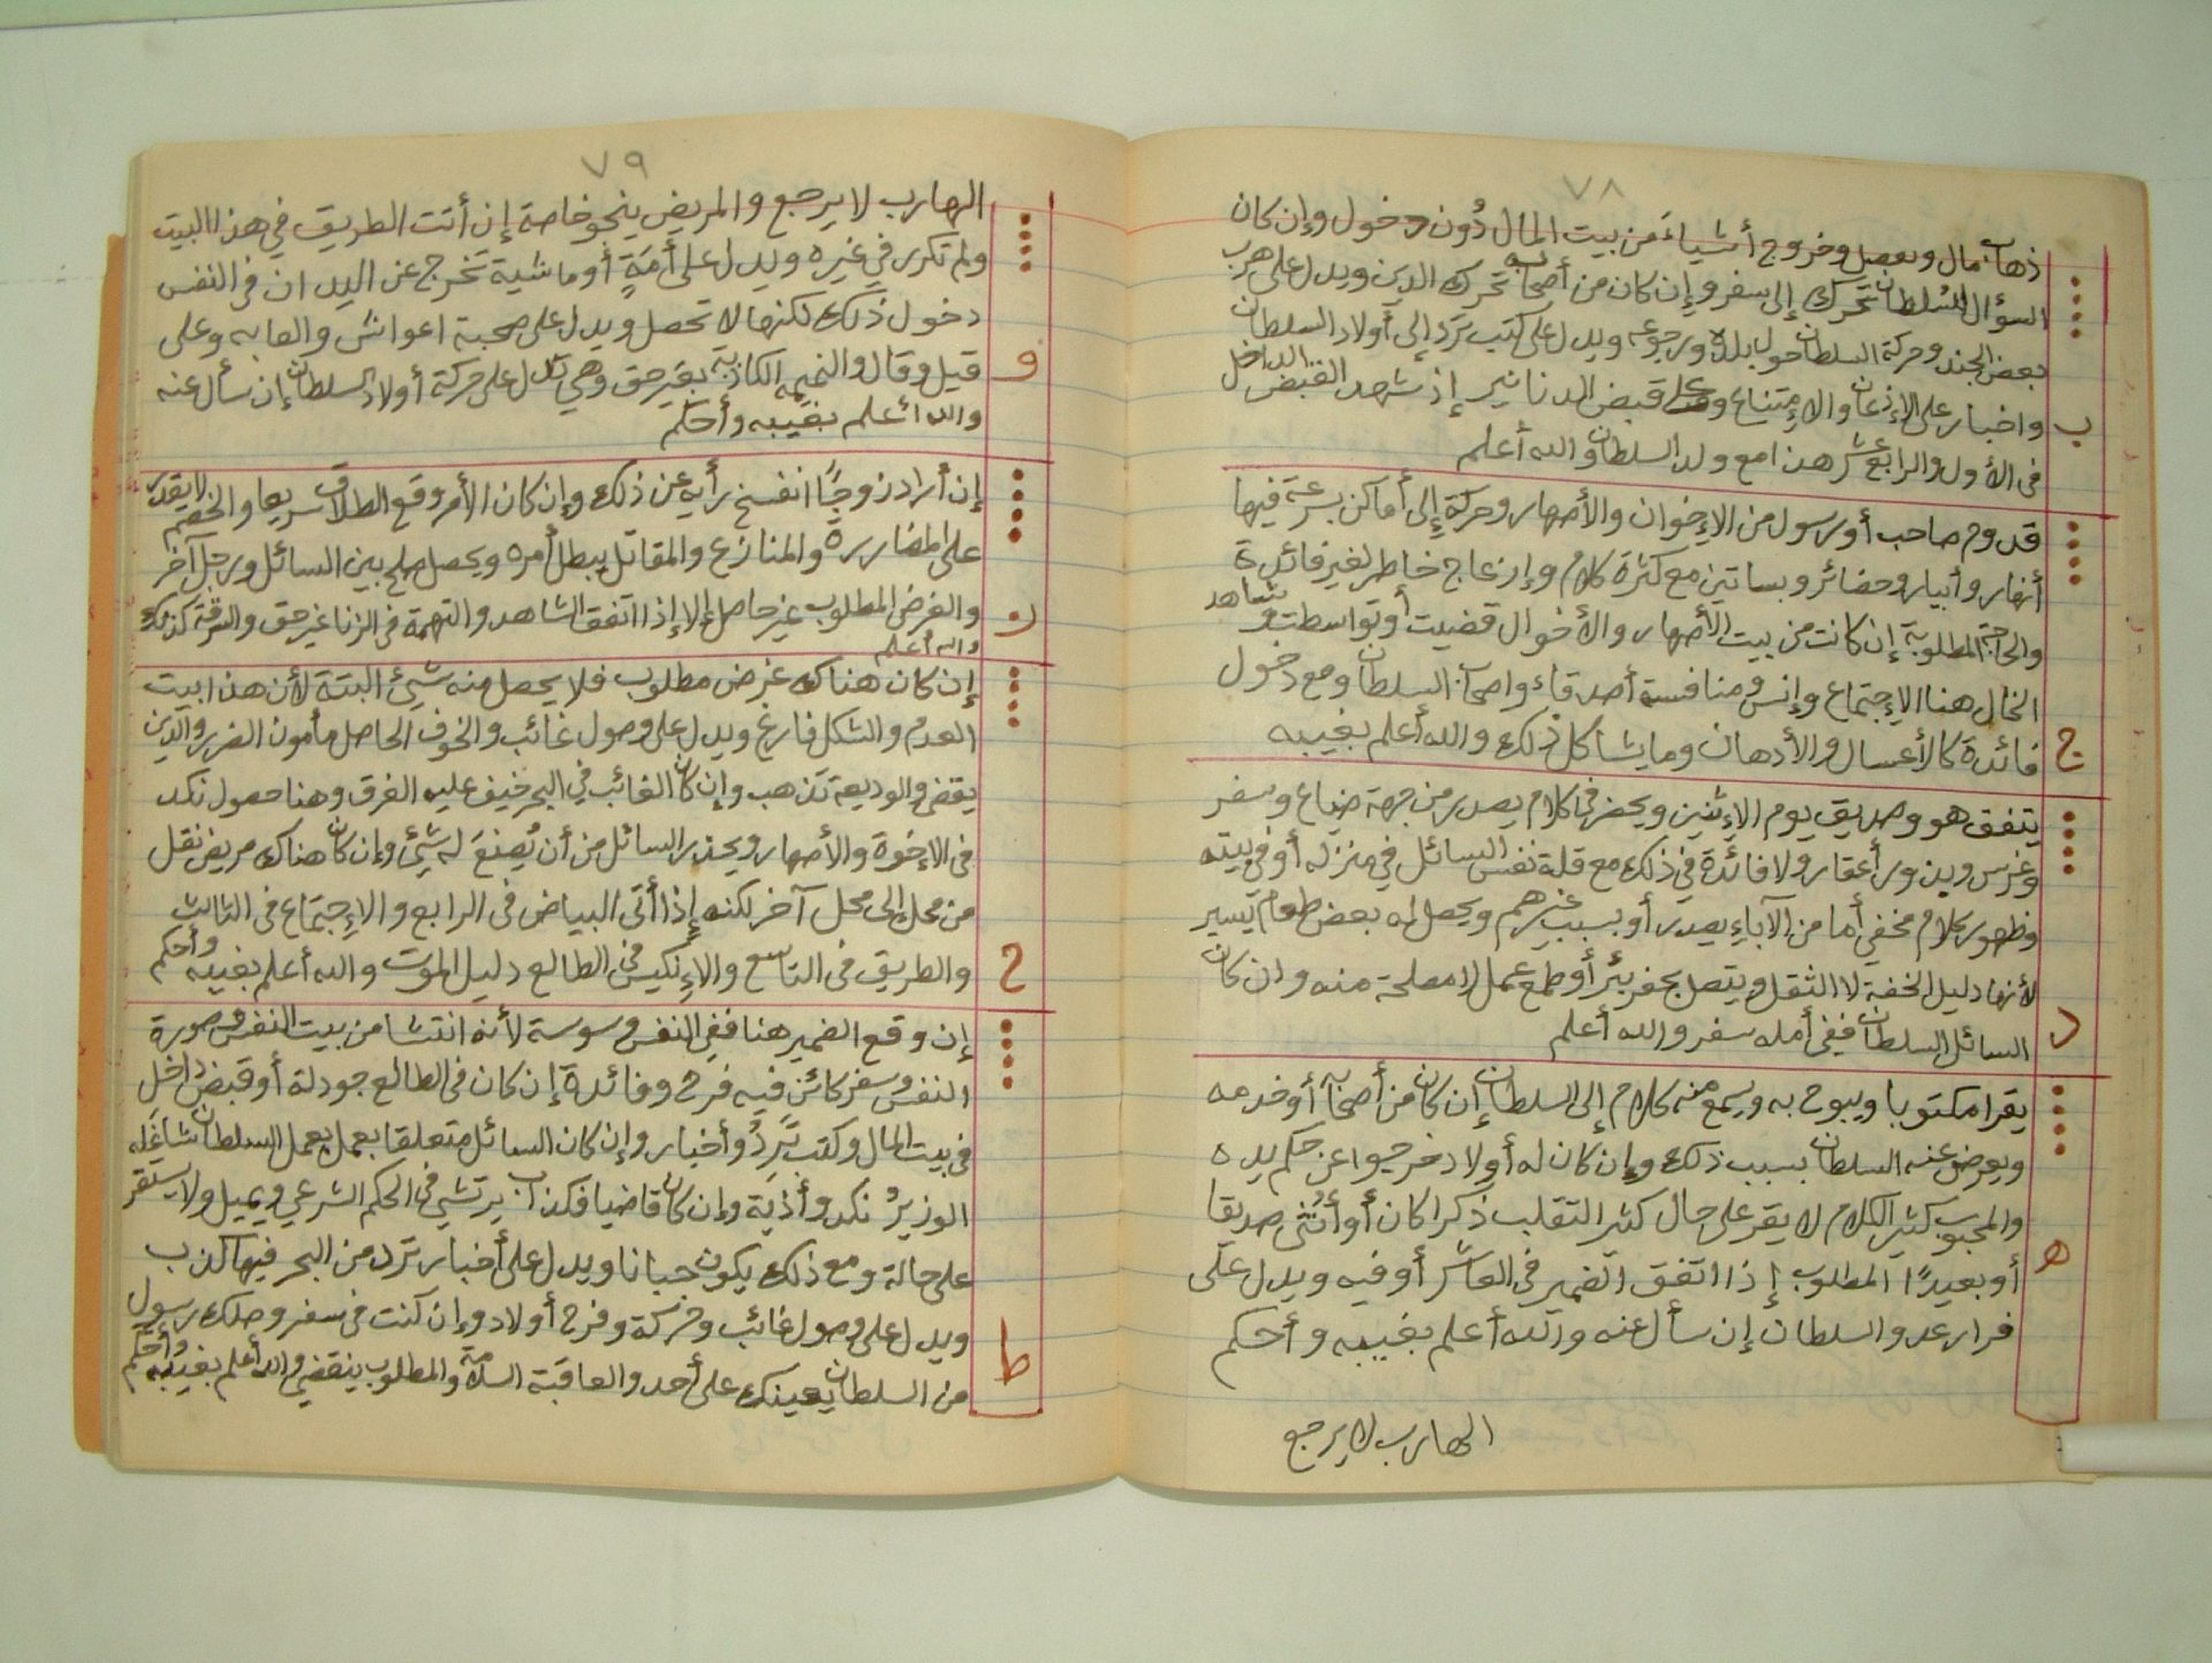 ٧٨
ذهاب مال وبعصل وخروج أشياءَ من بيت المال دُون دخول وإن كان
السؤال للسُلطان تحرك إلى سفر وإن كان من أصحابه تحرك الدين ويدل على هرب
بعض الجند وحركة السلطان حول بلده ورجوعه ويدل على كتب ترد إلى أولاد السلطان
ب واخبار على الإذعان والإمتناع وعلى قبض الدنانير إذ شهد القبض الداخل
فى الأول والرابع عشر هذا مع ولد السلطان والله أعلم
قدوم صاحب أو رسول من الإخوان والأصهار وحركة إلى أماكن بسرعة فيها
أنهار وأبيار وحضائر وبساتين مع كثرة كلام وإزعاج خاطر لغير فائدة
والحاجة المطلوبة إن كانت من بيت الأصهار والأخوال قضيت أو تواسطت وشاهد
الخال هنا الإجتماع وإنس ومنافسة أصدقاء واصحاب السلطان ومع دخول
ج فائدة كالأعسال والأدهان وما يشاكل ذلك والله أعلم بغيبه
يتفق هو وصديق يوم الإثنين ويحضر فى كلام يصدر من جهة ضياع وسفر
وغرس وبذور أعقار ولا فائدة في ذلك مع قلة نفس السائل في منزله أو في بيته
وظهور كلام مخفي أما من الآباء يصدر أو بسبب غيرهم ويحصل له بعض طعام يسير
لأنها دليل الخفة لا الثقل ويتصل بحفر بئر أو طمع عمل لا مصلحة منه وان كان
د السائل السلطان ففي أمله سفر والله أعلم
يقرا مكتوبا ويبوح به ويسمع منه كلام إلى السلطان إن كان من أصحابه أو خدمه
ويعرض عنه السلطان بسبب ذلك وإن كان له أولاد خرجوا عن حكم يده
والمحبوب كثير الكلام لا يقر على حال كثير التقلب ذكرا كان أو أنثى صديقا
ه أو بعيدًا المطلوب إذا اتفق الضمير فى العاشر أو فيه ويدل على
فرار عدو السلطان إن سأل عنه والله أعلم بغيبه وأحكم
الهارب لا يرجع
٧٩
الهارب لا يرجع والمريض ينجو خاصة إن أتت الطريق في هذا البيت
ولم تكرر في غيره ويدل على أمَةٍ أو ماشية تخرج عن اليد ان فى النفس
دخول ذلك لكنها لا تحصل ويدل على صحبة اعواش والعابه وعلى
و قيل وقال والنميمه الكاذبة بغير حق وهي تدل على حركة أولاد السلطان إن سأل عنه
والله أعلم بغيبه وأحكم
إن أراد زوجًا انفسخ رأيه عن ذلك وإن كان الأمر وقع الطلاق سريعا والخصم لا يقدر
على المضاررة والمنازع والمقاتل يبطل أمره ويحصل صلح بين السائل ورجل آخر
ز والغرض المطلوب غير حاصل إلا إذا اتفق الشاهد والتهمة فى الزنا غير حق والسرقة كذلك
والله أعلم
إن كان هناك غرض مطلوب فلا يحصل منه شئ البتة لأن هذا بيت
العدم والشكل فارغ ويدل على وصول غائب والخوف الحاصل مأمون الضرر والدين
يقضى والوديعة تذهب وإن كان الغائب في البحر خيف عليه الغرق وهنا حصول نكد
فى الإخوة والأصهار ويحذر السائل من أن يُصنعَ له شئ وإن كان هناك مريض نقل
من محل إلى محل آخر لكنه إذا أتى البياض فى الرابع والإجتماع فى الثالث
ح والطريق فى التاسع والإنكيس فى الطالع دليل الموت والله أعلم بغيبه وأحكم
إن وقع الضمير هنا ففي النفس وسوسة لأنه انتشا من بيت النفس وصورة
النفس وسفر كائن فيه فرح وفائدة إن كان فى الطالع جودلة أو قبض داخل
فى بيت المال وكتب تَرِدُ وأخبار وإن كان السائل متعلقا بعمل يعمل السلطان شاغله
الوزيرُ نكد وأذية وإن كان قاضيا فكذاب يرتشي فى الحكم الشرعي ويميل ولا يستقر
على حالة ومع ذلك يكون جبانا ويدل على أخبار ترد من البحر فيها كذب
ويدل على وصول غائب وحركة وفرح أولاد وإن كنت فى سفر وصلك رسول
ط من السلطان يعينك على أحد والعاقبة السلامة والمطلوب ينقضي والله أعلم بغيبه وأحكم